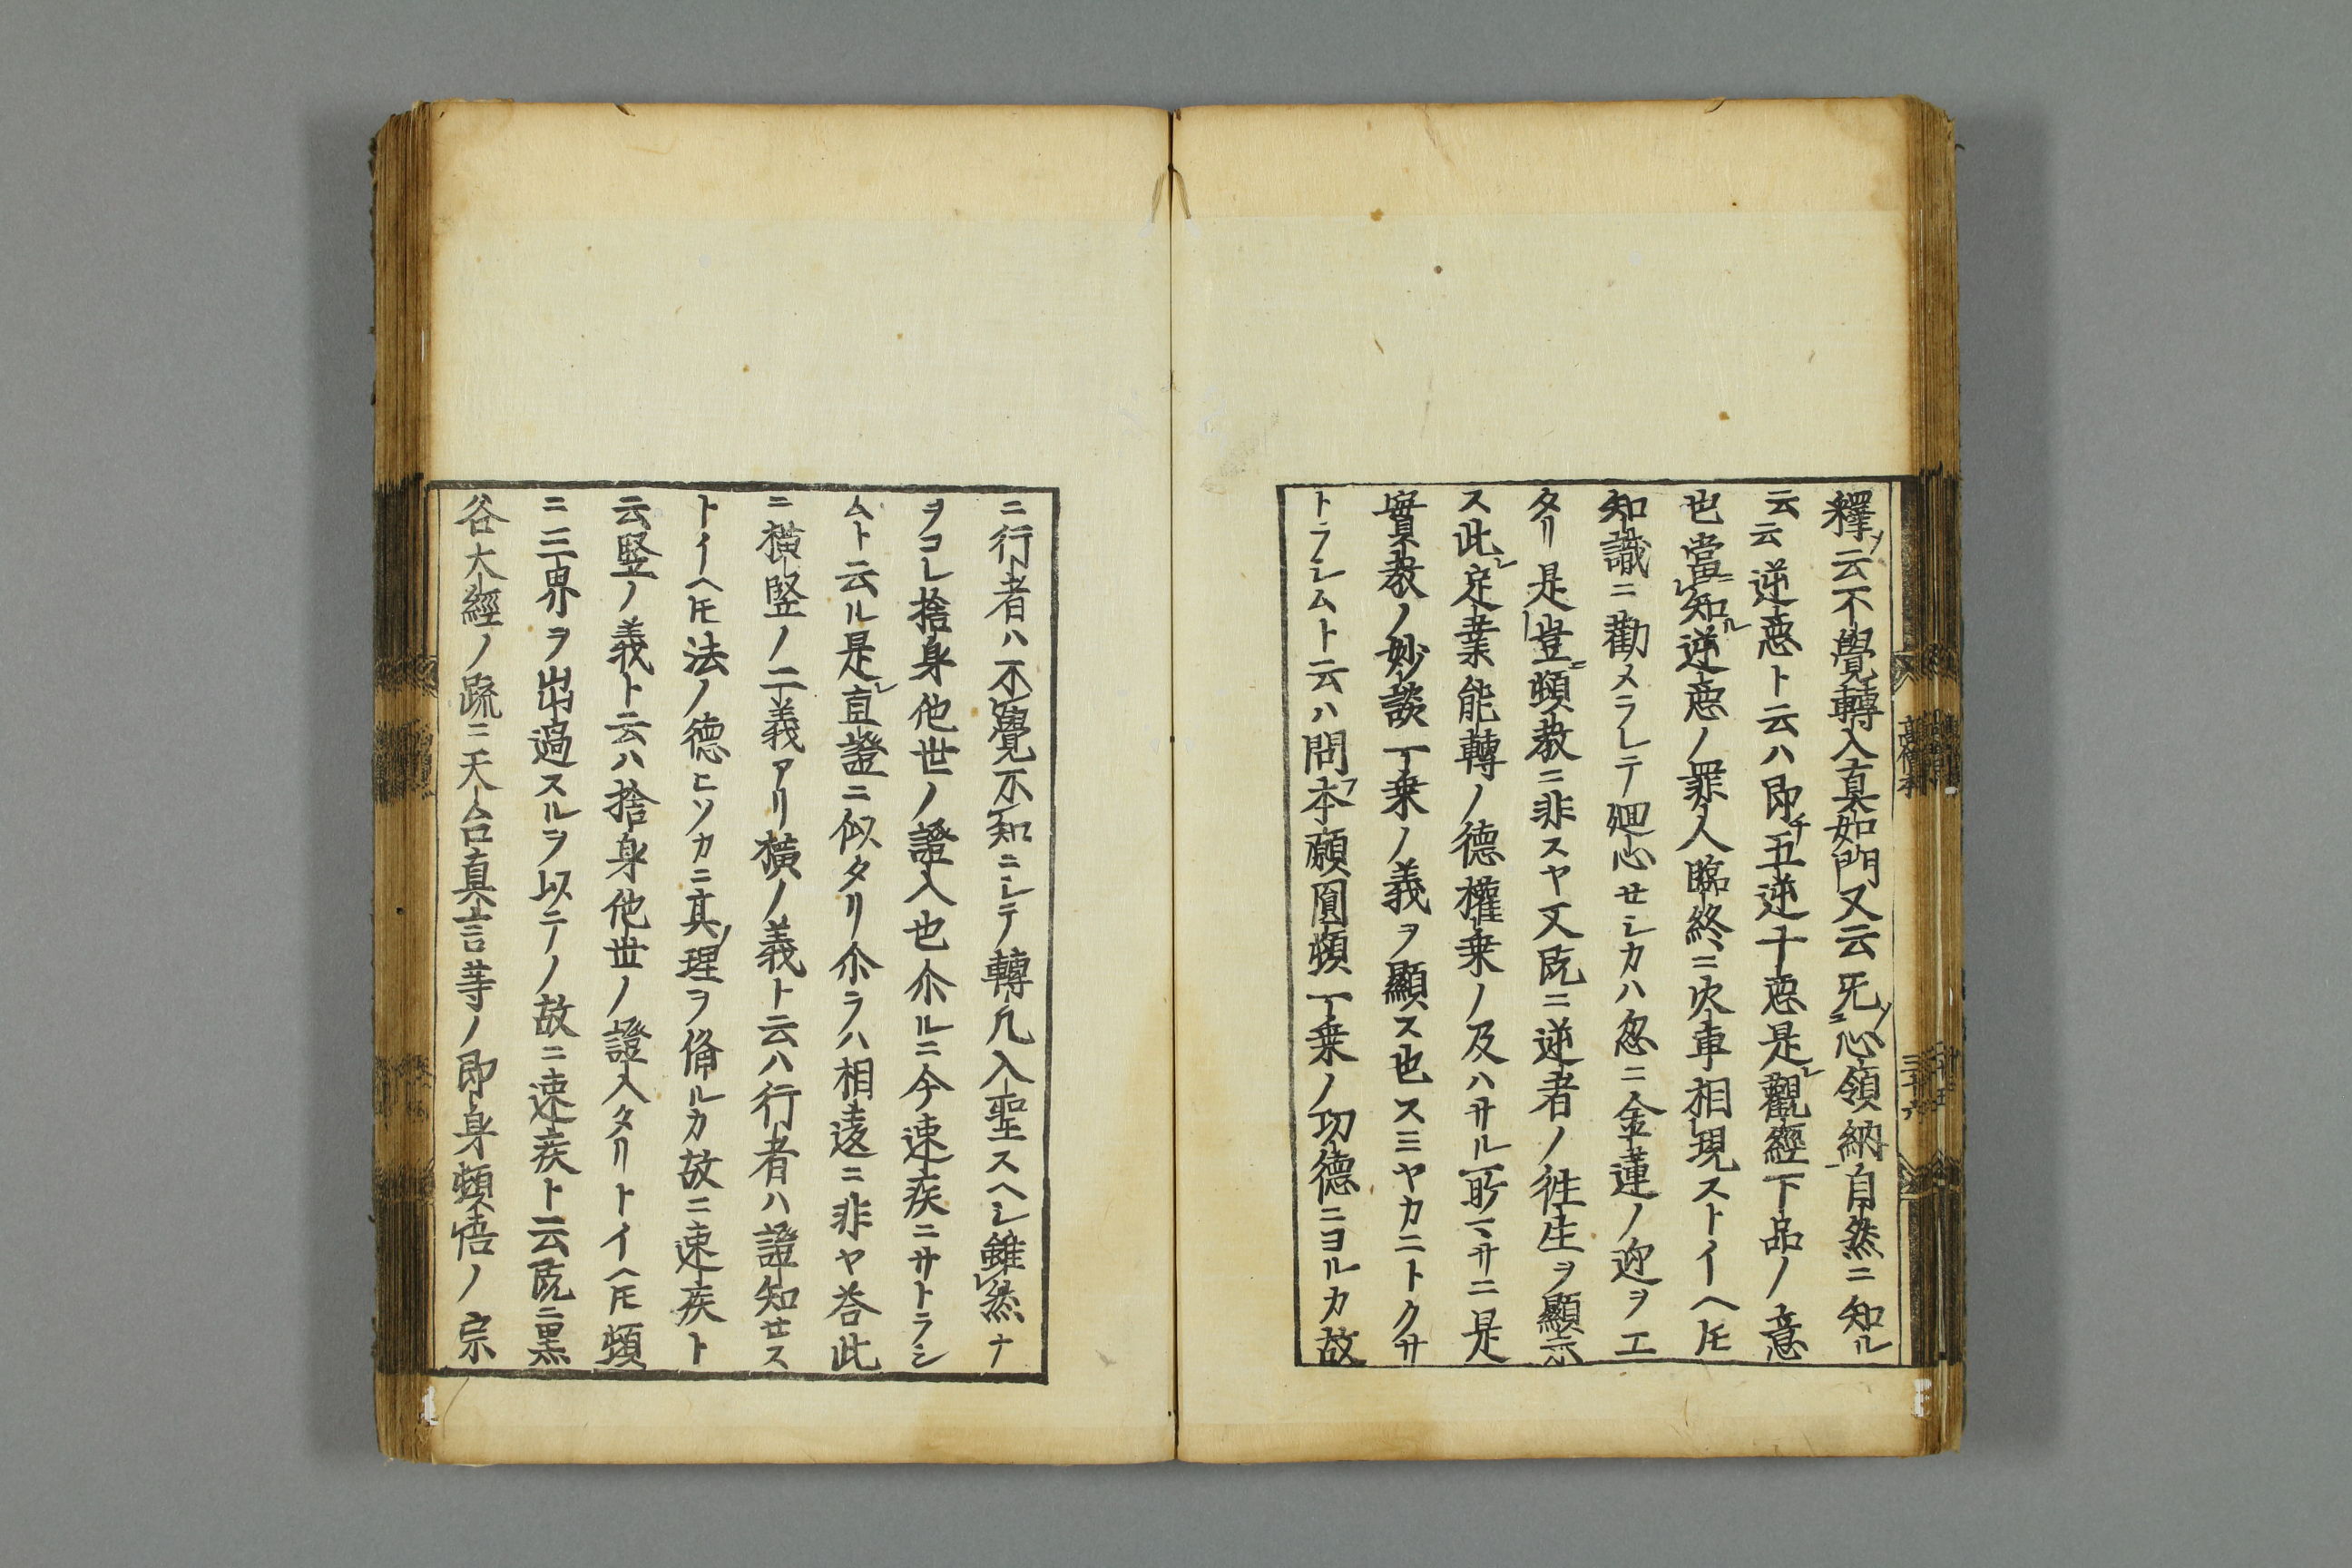 釋ノ云不覺轉入真如門又云死心領納自然ニ知ル
云云逆悪ト云ハ即チ五逆十悪是レ觀經下品ノ意
也當ニ知ル逆悪ノ罪人臨終ニ火車相現ストイヘ𪜈
知識ニ勸メラレテ廻心セシカハ忽ニ金蓮ノ迎ヲエ
タリ是豈ニ頓教ニ非スヤ又既ニ逆者ノ徃生ヲ顯示
ス此レ定業能轉ノ德權乗ノ及ハサル所マサニ是
實教ノ妙談一乗ノ義ヲ顯ス也スミヤカニトクサ
トラシムト云ハ問フ本願圓頓一乗ノ功德ニヨルカ故
ニ行者ハ不覺不知ニシテ轉凡入聖スヘシ雖然ナ
ヲコレ捨身他世ノ證入也尒ルニ今速疾ニサトラシ
ムト云ル是レ直證ニ似タリ尒ラハ相違ニ非ヤ荅此
ニ橫竪ノ二義アリ橫ノ義ト云ハ行者ハ證知セス
トイヘ𪜈法ノ德ヒソカニ真ノ理ヲ備ルカ故ニ速疾ト
云竪ノ義ト云ハ捨身他世ノ證入タリトイヘ𪜈頓
ニ三界ヲ出過スルヲ以テノ故ニ速疾ト云既ニ黒
谷大經ノ疏ニ天台真言等ノ即身頓悟ノ宗
三十六